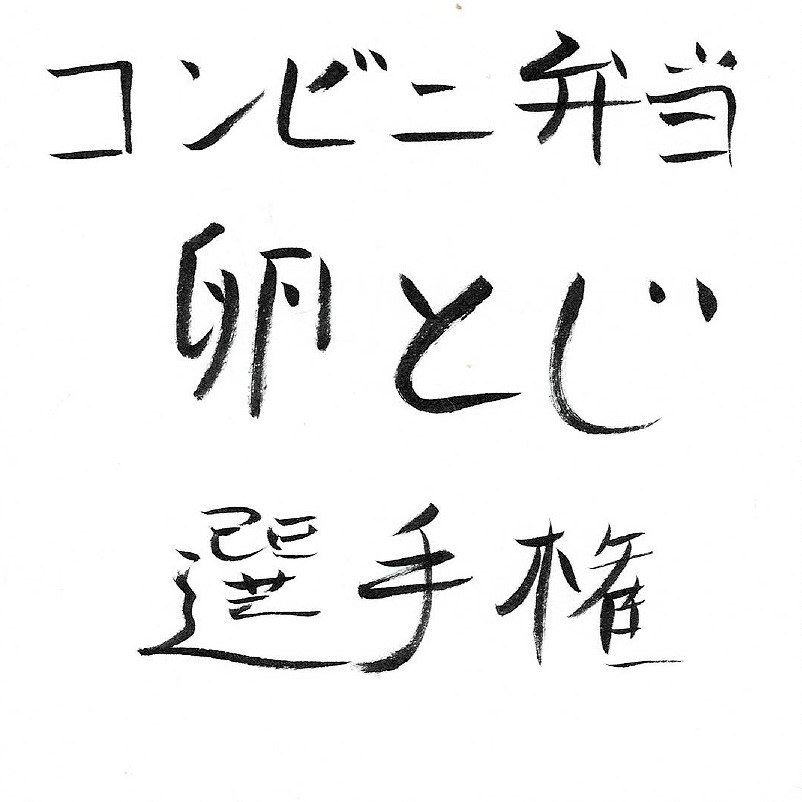 コンビニ弁当
卵とじ
選手権